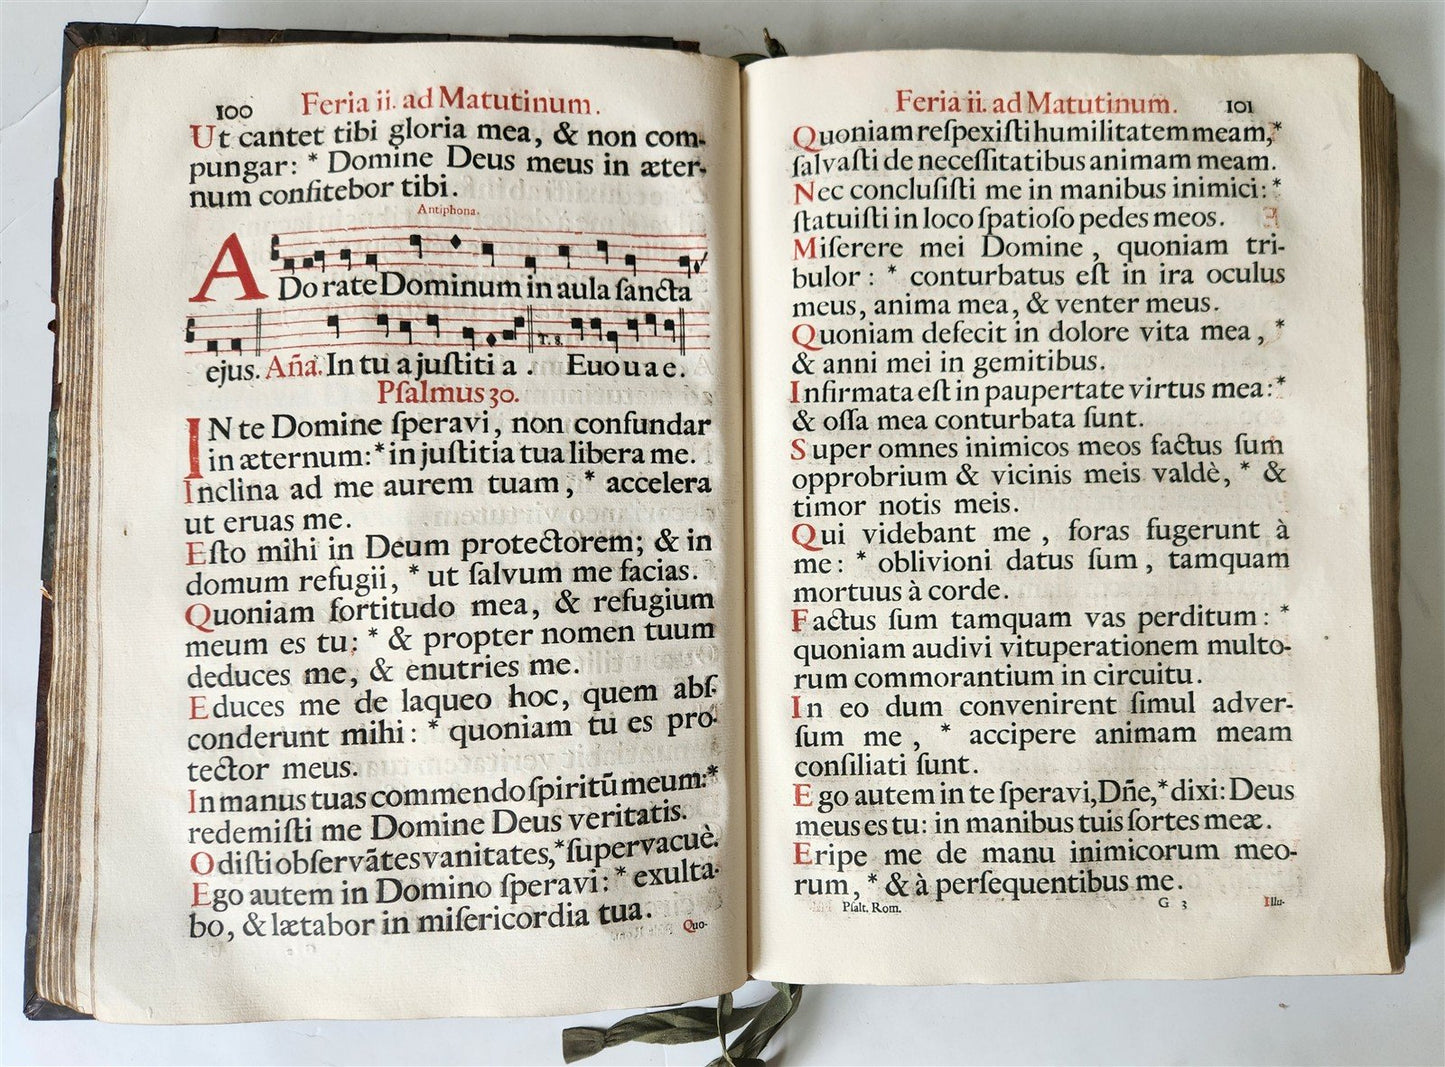 100 Feria ii. ad Matutinum.
Ut cantet tibi gloria mea, & non com-
pungar: * Domine Deus meus in æter-
num confitebor tibi.
Antiphona.
ADo rate Dominum in aula ſancta
T. 8.
ejus. Aña. In tu a juſtiti a . Euouae.
Pſalmus 30.
IN te Domine ſperavi, non confundar
in æternum: * in juſtitia tua libera me.
Inclina ad me aurem tuam, * accelera
ut eruas me.
Eſto mihi in Deum protectorem; & in
domum refugii, * ut ſalvum me facias.
Quoniam fortitudo mea, & refugium
meum es tu: * & propter nomen tuum
deduces me, & enutries me.
Educes me de laqueo hoc, quem abſ-
conderunt mihi: * quoniam tu es pro-
tector meus.
In manus tuas commendo ſpiritũ meum: *
redemiſti me Domine Deus veritatis.
Odiſti obſervãtes vanitates, * ſupervacuè.
Ego autem in Domino ſperavi: * exulta-
bo, & lætabor in miſericordia tua.
Quo-
Feria ii. ad Matutinum. 101
Quoniam reſpexiſti humilitatem meam, *
ſalvaſti de neceſſitatibus animam meam.
Nec concluſiſti me in manibus inimici: *
ſtatuiſti in loco ſpatioſo pedes meos.
Miſerere mei Domine, quoniam tri-
bulor: * conturbatus eſt in ira oculus
meus, anima mea, & venter meus.
Quoniam defecit in dolore vita mea, *
& anni mei in gemitibus.
Infirmata eſt in paupertate virtus mea: *
& oſſa mea conturbata ſunt.
Super omnes inimicos meos factus ſum
opprobrium & vicinis meis valdè, * &
timor notis meis.
Qui videbant me, foras fugerunt à
me: * oblivioni datus ſum, tamquam
mortuus à corde.
Factus ſum tamquam vas perditum: *
quoniam audivi vituperationem multo-
rum commorantium in circuitu.
In eo dum convenirent ſimul adver-
ſum me, * accipere animam meam
conſiliati ſunt.
Ego autem in te ſperavi, Dñe, * dixi: Deus
meus es tu: in manibus tuis ſortes meæ.
Eripe me de manu inimicorum meo-
rum, * & à perſequentibus me.
Pſalt. Rom. G 3 Illu-